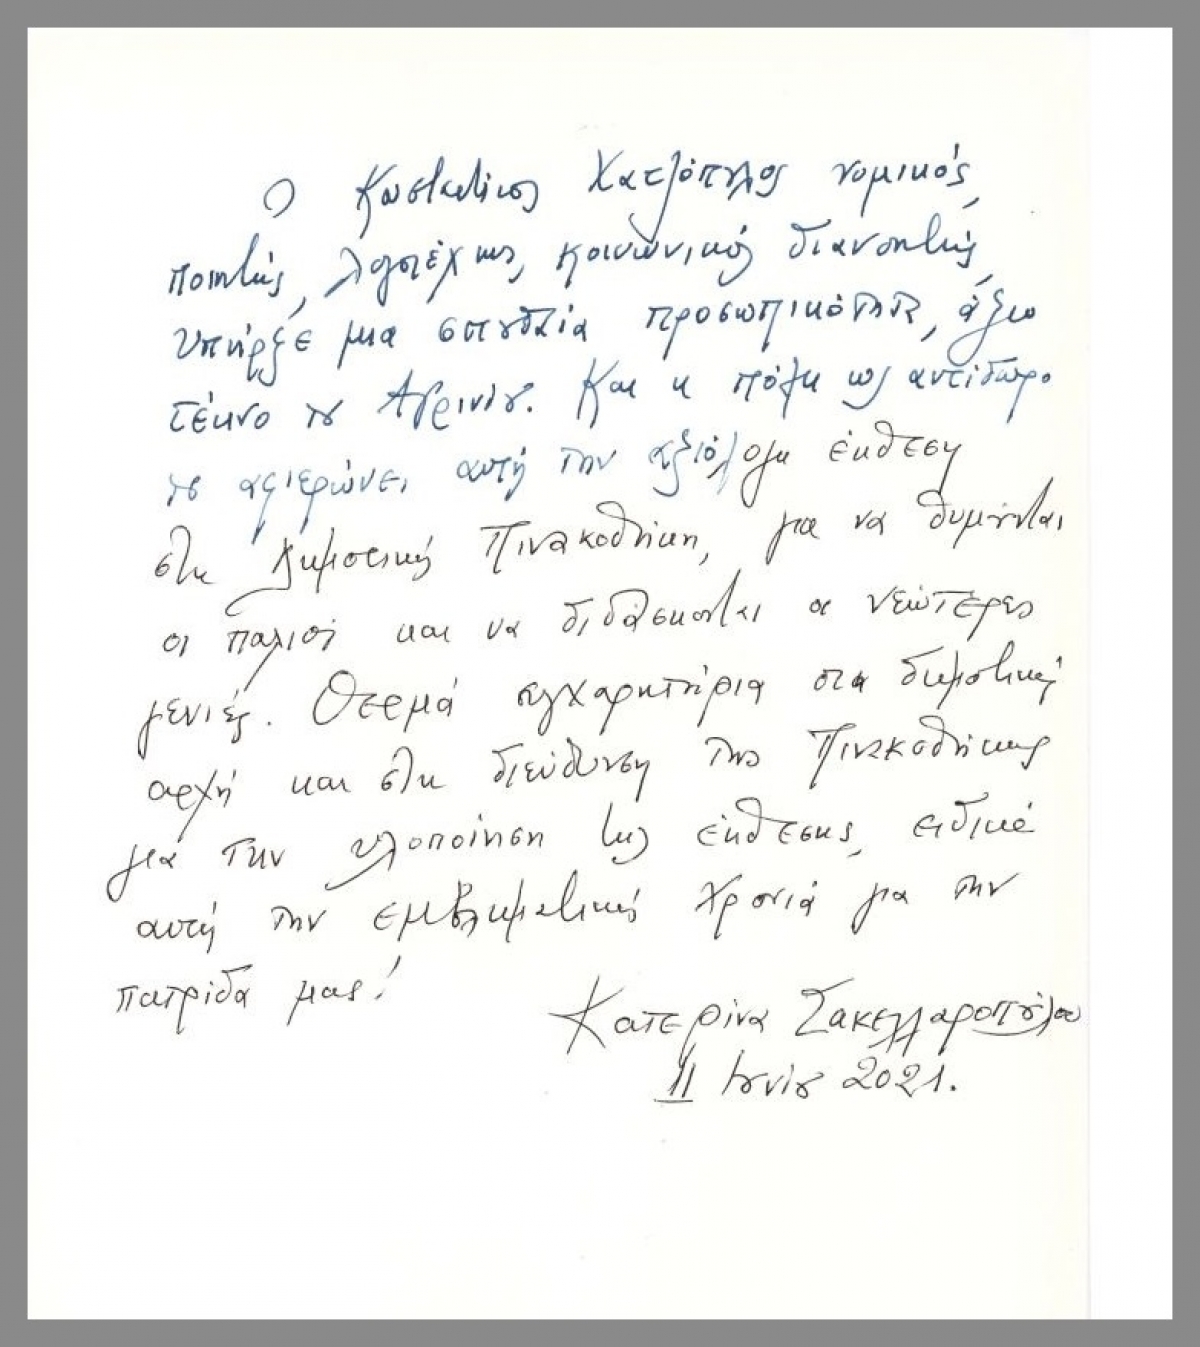 Ο Κωσταντίνος Χατζόπουλος νομικός,
ποιητής, λογοτέχνης, κοινωνικός διανοητής,
υπήρξε μια σπουδαία προσωπικότητα, άξιο
τέκνο του Αγρινίου. Και η πόλη ως αντίδωρο
του αφιερώνει αυτή την αξιόλογη έκθεση
στη Δημοτική Πινακοθήκη, για να θυμούνται
οι παλιοί και να διδάσκονται οι νεώτερες
γενιές. Θερμά συγχαρητήρια στη δημοτική
αρχή και στη διεύθυνση της Πινακοθήκης
για την υλοποίηση της έκθεσης, ειδικά
αυτή την εμβληματική χρονιά για την
πατρίδα μας!
Κατερίνα Σακελλαροπούλου
11 Ιουνίου 2021.